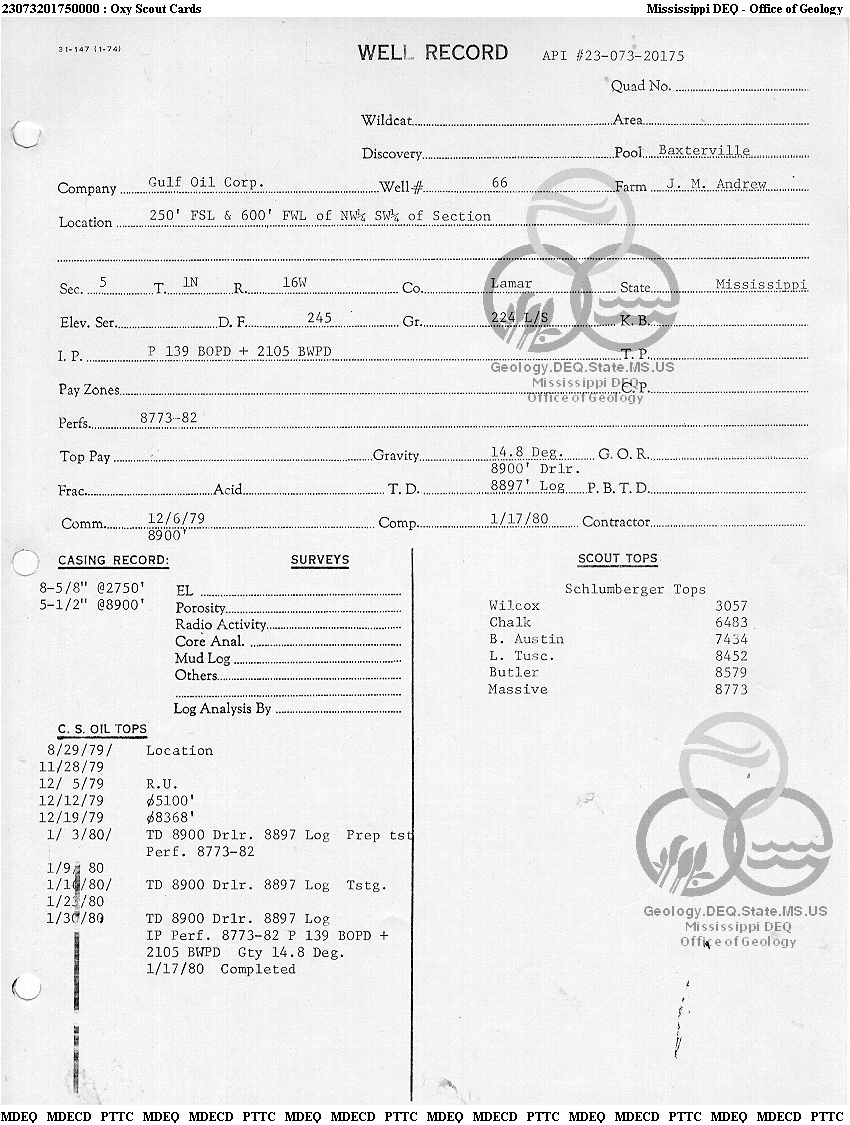 23073201750000 : Oxy Scout Cards Mississippi DEQ - Office of Geology
31-147 (1-74)
WELL RECORD API #23-073-20175
Quad No.
Wildcat Area
Discovery Pool Baxterville
Company Gulf Oil Corp. Well # 66 Farm J. M. Andrew
Location 250' FSL & 600' FWL of NW¼ SW¼ of Section
Sec. 5 T. 1N R. 16W Co. Lamar State Mississippi
Elev. Ser. D. F. 245 Gr. 224 L/S K. B.
I. P. P 139 BOPD + 2105 BWPD T. P.
Geology.DEQ.State.MS.US
Mississippi DEQ
Office of Geology
Pay Zones C. P.
Perfs. 8773-82
Top Pay Gravity 14.8 Deg. G. O. R.
8900' Drlr.
Frac. Acid T. D. 8897' Log P. B. T. D.
Comm. 12/6/79 Comp. 1/17/80 Contractor
8900'
CASING RECORD: SURVEYS SCOUT TOPS
8-5/8" @2750' EL Schlumberger Tops
5-1/2" @8900' Porosity Wilcox 3057
Radio Activity Chalk 6483
Core Anal. B. Austin 7434
Mud Log L. Tusc. 8452
Others Butler 8579
Massive 8773
Log Analysis By
C. S. OIL TOPS
8/29/79/ Location
11/28/79
12/ 5/79 R.U.
12/12/79 ø5100'
12/19/79 ø8368'
1/ 3/80/ TD 8900 Drlr. 8897 Log Prep tst
Perf. 8773-82
1/9/ 80
1/16/80/ TD 8900 Drlr. 8897 Log Tstg.
1/23/80
1/30/80 TD 8900 Drlr. 8897 Log
IP Perf. 8773-82 P 139 BOPD +
2105 BWPD Gty 14.8 Deg.
1/17/80 Completed
Geology.DEQ.State.MS.US
Mississippi DEQ
Office of Geology
MDEQ MDECD PTTC MDEQ MDECD PTTC MDEQ MDECD PTTC MDEQ MDECD PTTC MDEQ MDECD PTTC MDEQ MDECD PTTC